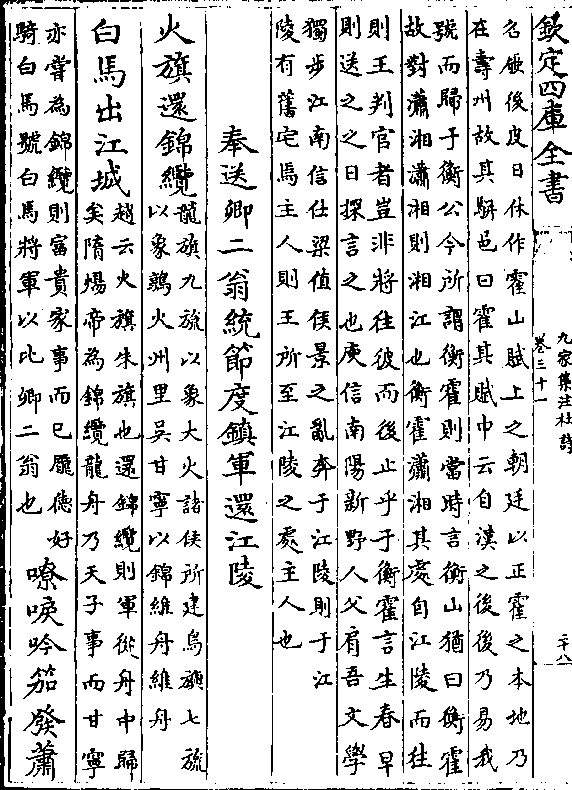 欽定四庫全書
九家集注杜詩
卷三十一
二十八
名厥後皮日休作霍山賦上之朝廷以正霍之本地乃
在壽州故其駢邑曰霍其賦中云自漢之後後乃易我
號而歸于衡公今所謂衡霍則當時言衡山猶曰衡霍
故對瀟湘瀟湘則湘江也衡霍瀟湘其處自江陵而往
則王判官者豈非將往彼而後止乎于衡霍言生春早
則送之之日探言之也庾信南陽新野人父肩吾文學
獨步江南信仕梁值侯景之亂奔于江陵則于江
陵有舊宅焉主人則王所至江陵之處主人也
奉送卿二翁統節度鎮軍還江陵
火旗還錦纜
龍旗九旒以象大火諸侯所建鳥旟七旒
以象鶉火州里吳甘寧以錦維舟維舟
白馬出江城
趙云火旗朱旗也還錦纜則軍從舟中歸
矣隋煬帝為錦纜龍舟乃天子事而甘寧
亦嘗為錦纜則富貴家事而已龐德好
騎白馬號白馬將軍以比卿二翁也
嘹唳吟笳發蕭